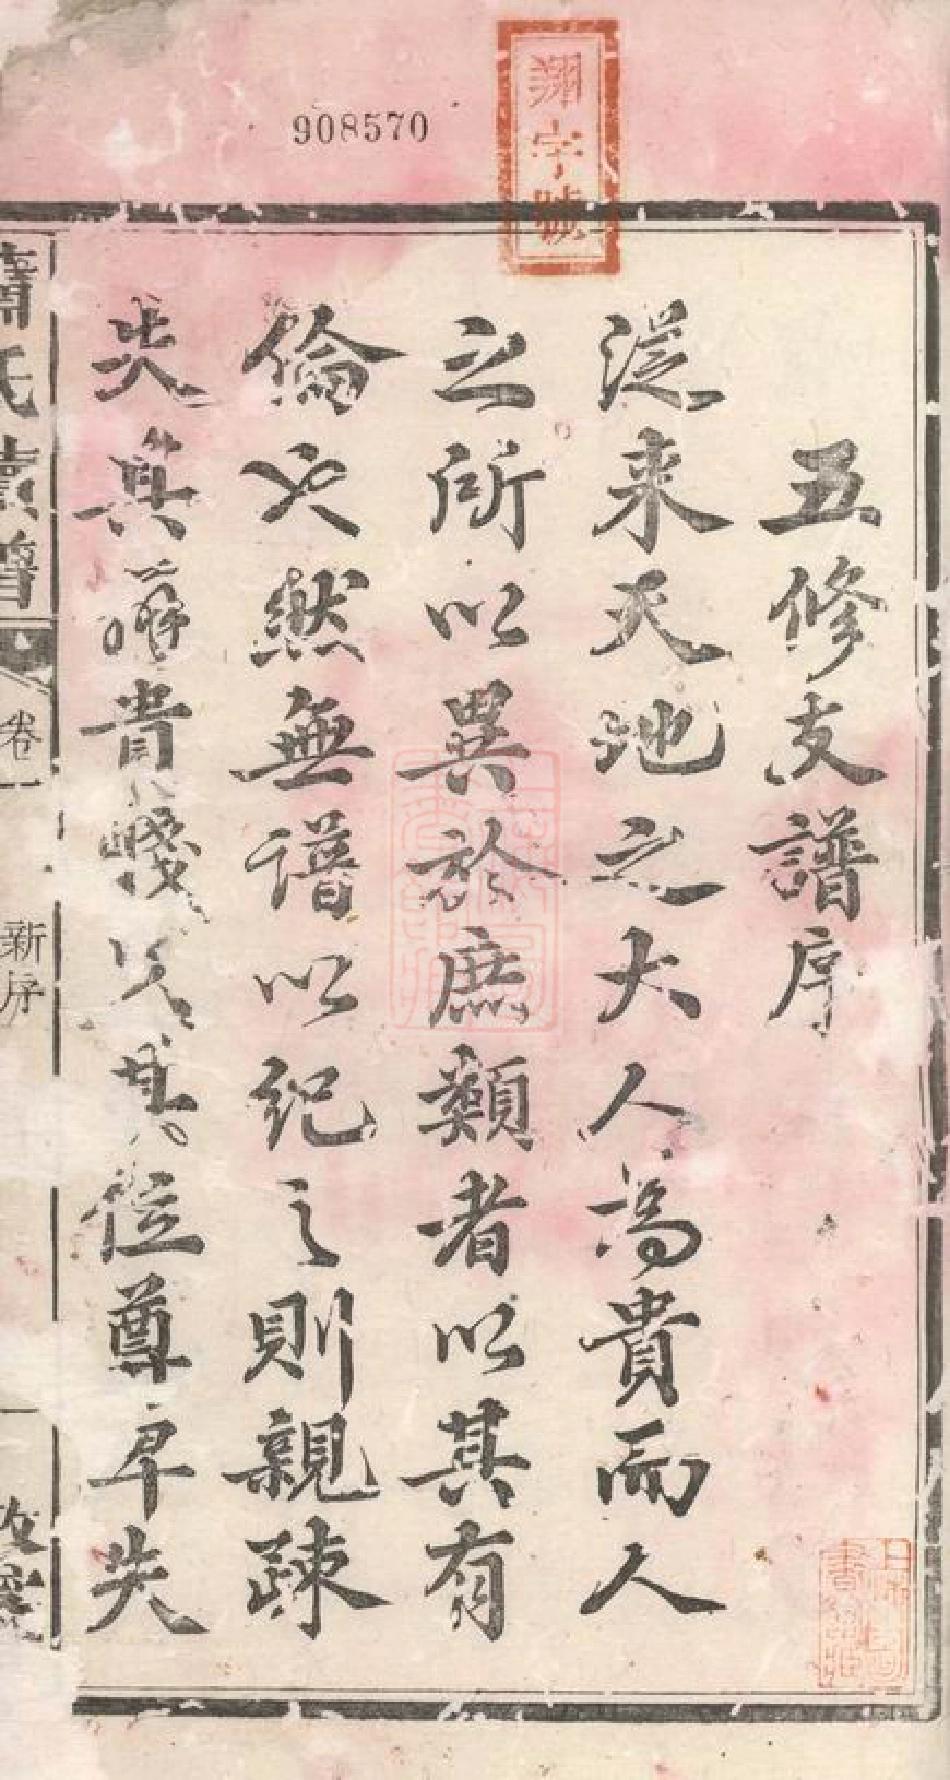 908570
翔字號
五修支譜序
從来天地之大人為貴而人
之所以異於庶類者以其有
倫也然無譜以紀之則親疎
失真薛貴賤失其位尊卑失
蕭氏續譜
卷一
新序
一